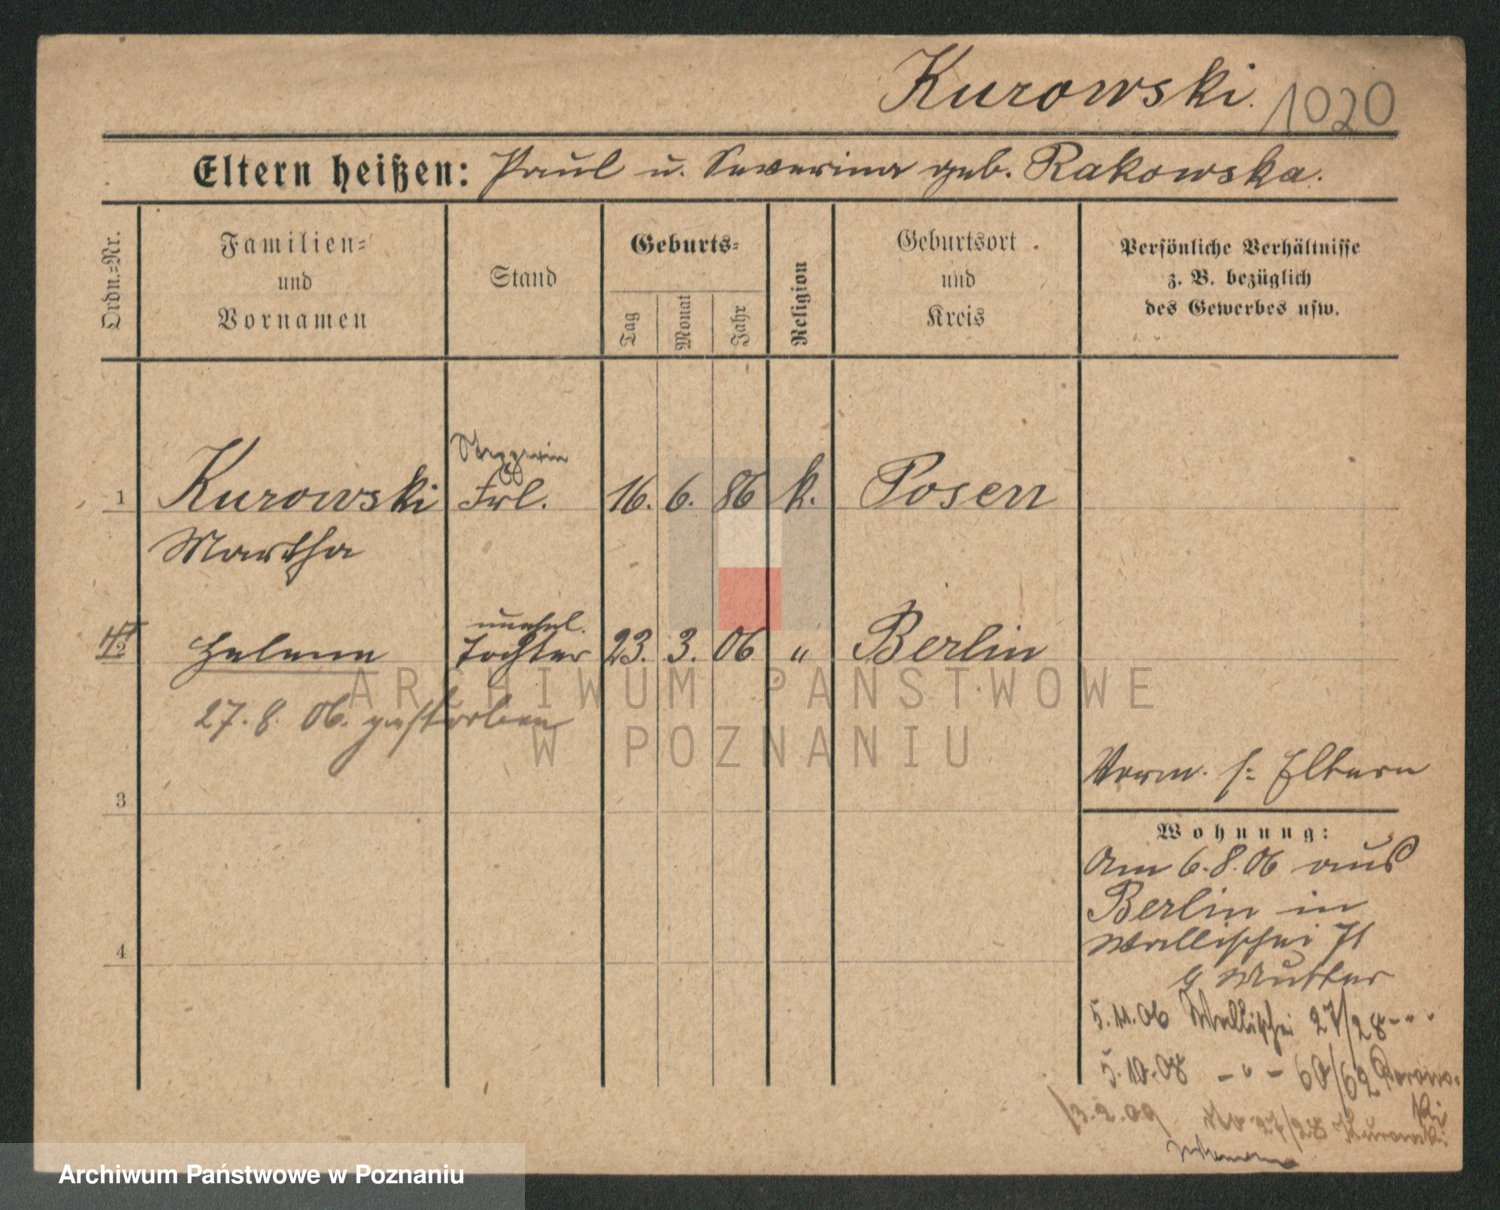 Kurowski. 1020
Eltern heißen: Paul u. Severina geb. Rakowska.
Ordn.=Nr.
Familien=
und
Vornamen
Stand
Geburts=
Tag
Monat
Jahr
Religion
Geburtsort
und
Kreis
Persönliche Verhältnisse
z. B. bezüglich
des Gewerbes usw.
Stepperin
1 Kurowski Frl. 16. 6. 86 k. Posen
Martha
unehel.
2 Helene Tochter 23. 3. 06 " Berlin
27. 8. 06. gestorben
ARCHIWUM PAŃSTWOWE
W POZNANIU
Verm. s: Eltern
3
Wohnung:
Am 6.8.06 aus
Berlin in
Wallischei 71
b Mutter
4
5.11.06 Wallischei 27/28 - " -
5.10.08 - " - 60/62 Kurows-
ki
13.2.09 27/28 Kurowski
Archiwum Państwowe w Poznaniu